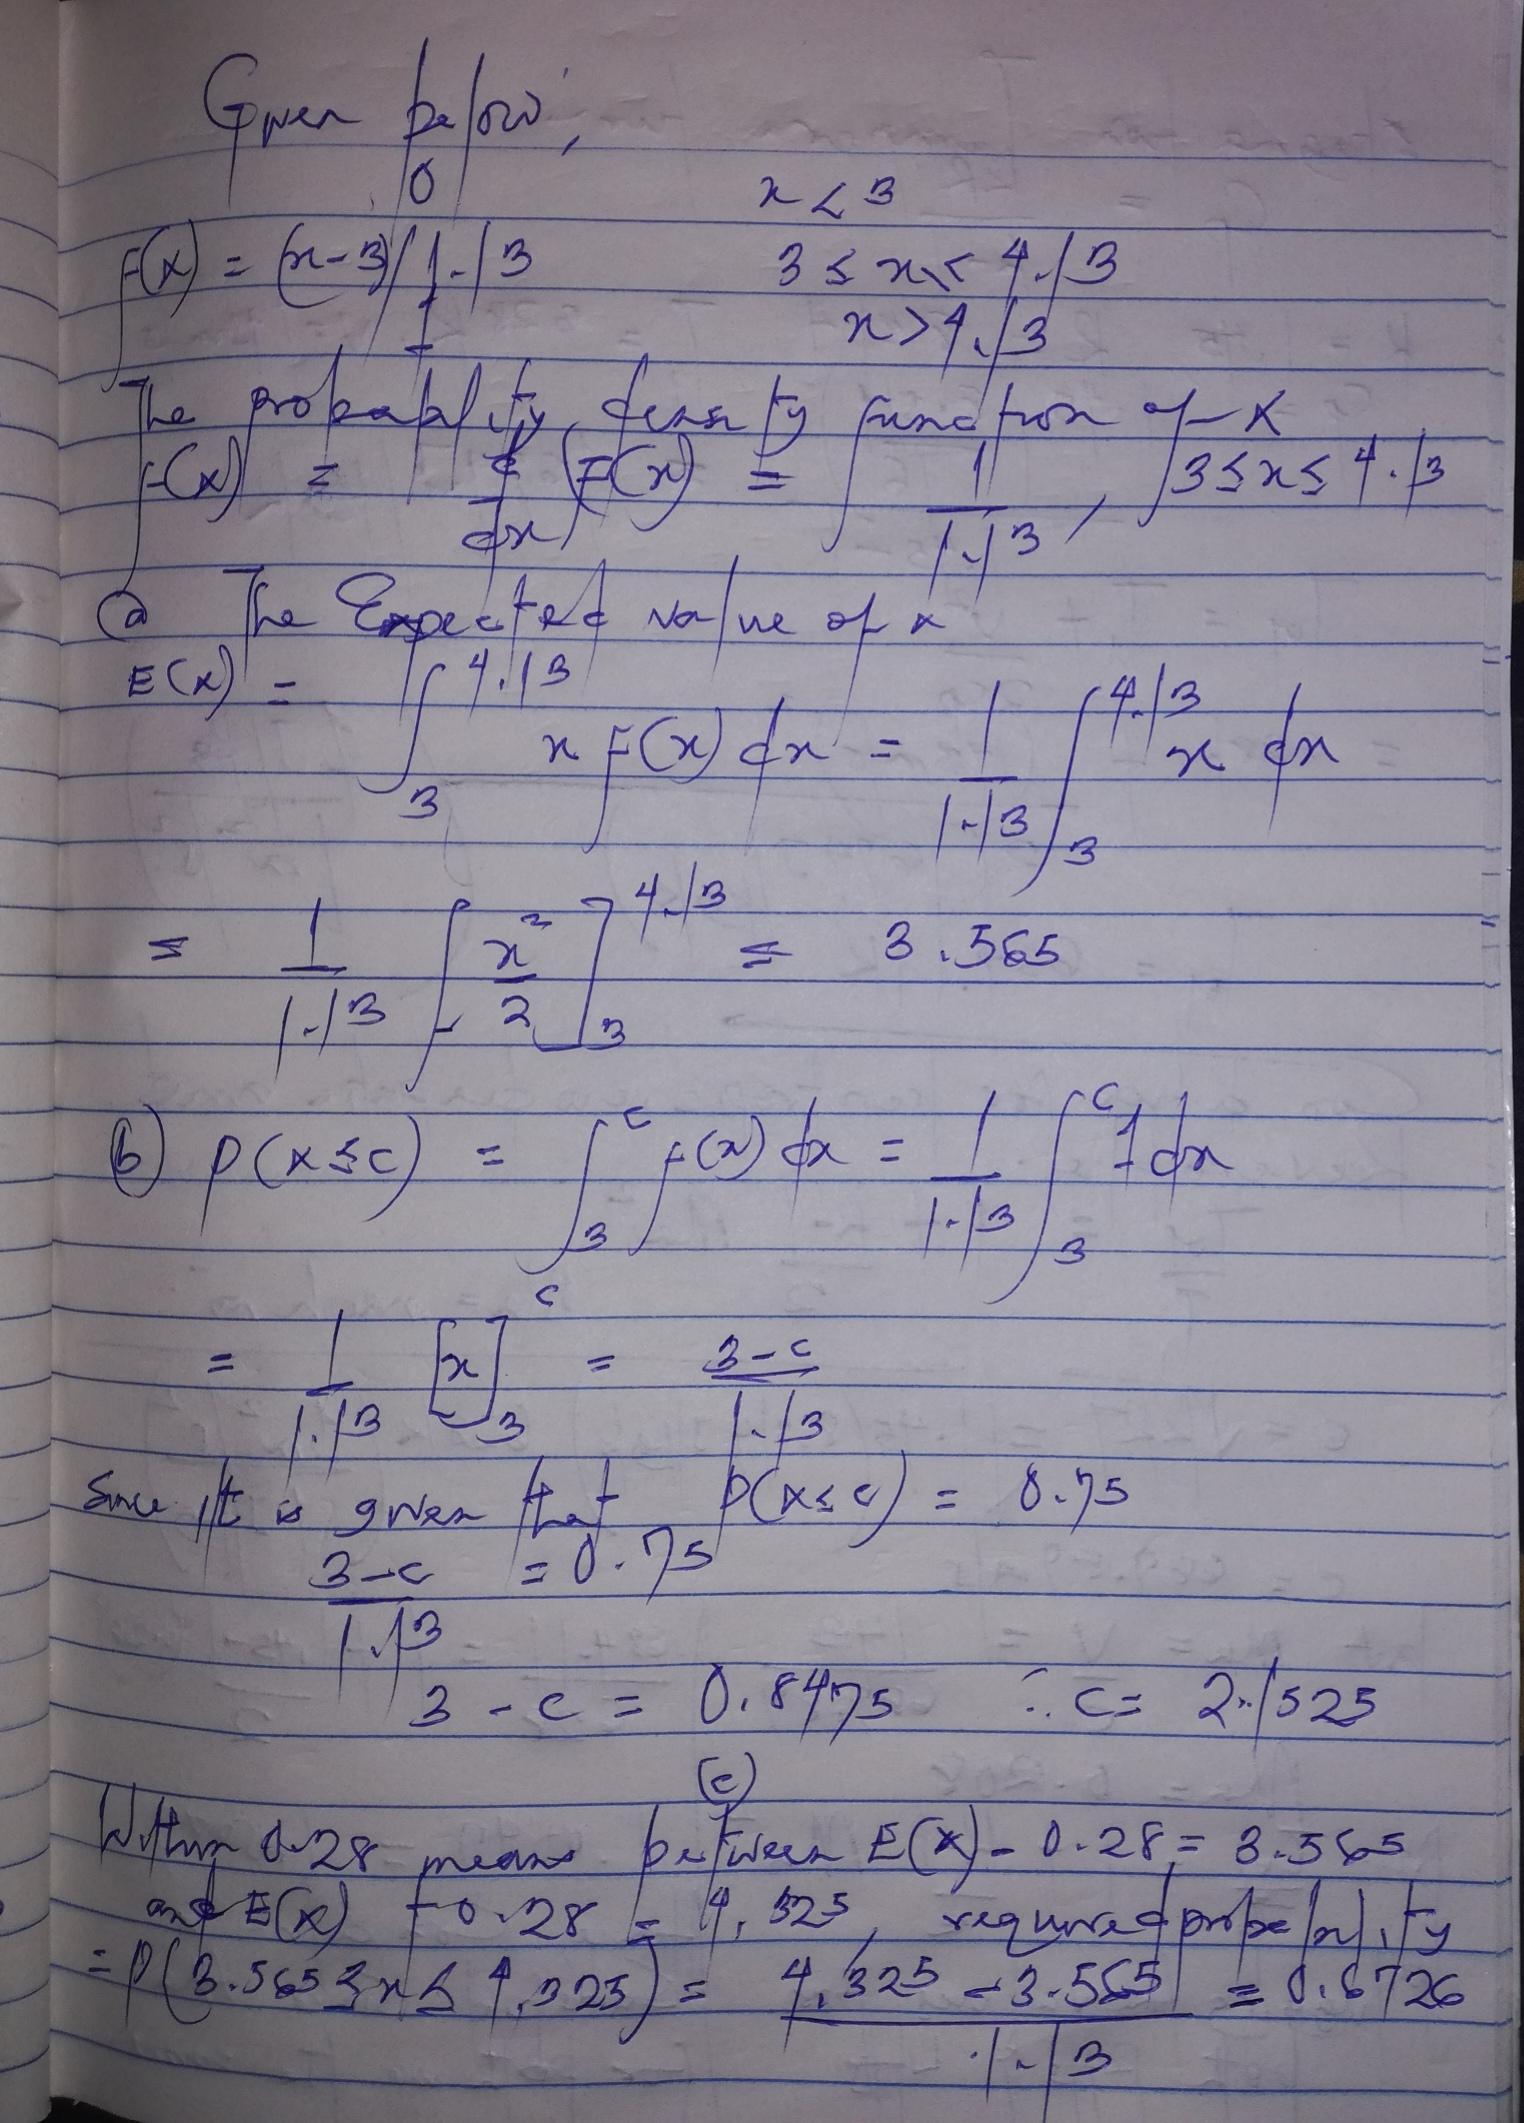 Given below,
0 x < 3
F(x) = (x-3)/1.13 3 ≤ x < 4.13
1 x > 4.13
The probability density function of X
f(x) = d/dx (F(x)) = 1/1.13, 3 ≤ x ≤ 4.13
(a) The Expected value of x
E(x) = ∫_3^4.13 x f(x) dx = 1/1.13 ∫_3^4.13 x dx
= 1/1.13 [x²/2]_3^4.13 = 3.565
(b) P(x ≤ c) = ∫_3^c f(x) dx = 1/1.13 ∫_3^c 1 dx
= 1/1.13 [x]_3^c = 3-c/1.13
Since it is given that P(x ≤ c) = 0.75
3-c/1.13 = 0.75
3 - c = 0.8475 ∴ c = 2.1525
(c)
Within 0.28 means between E(x) - 0.28 = 3.565
and E(x) + 0.28 = 4.325, required probability
= P(3.565 ≤ x ≤ 4.325) = 4.325 - 3.565/1.13 = 0.6726